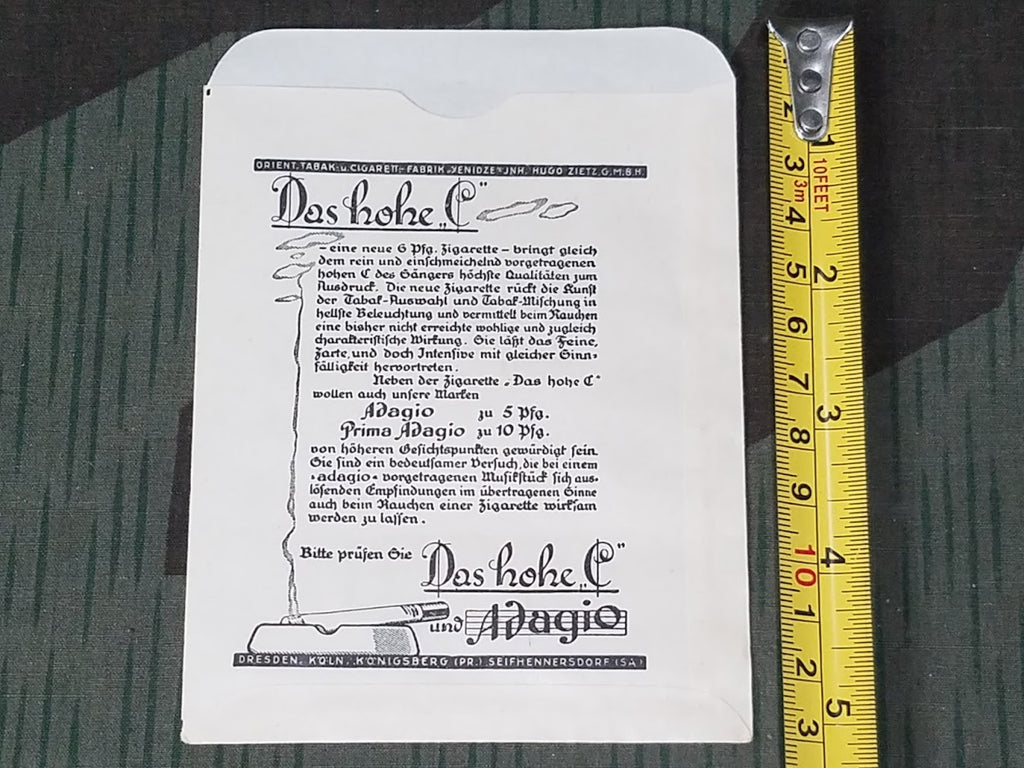 ORIENT. TABAK- u. CIGARETT.-FABRIK „YENIDZE“ JNH. HUGO ZIETZ, G.M.B.H.
Das hohe „C“
– eine neue 6 Pfg. Zigarette – bringt gleich
dem rein und einschmeichelnd vorgetragenen
hohen C des Sängers höchste Qualitäten zum
Ausdruck. Die neue Zigarette rückt die Kunst
der Tabak-Auswahl und Tabak-Mischung in
hellste Beleuchtung und vermittelt beim Rauchen
eine bisher nicht erreichte wohlige und zugleich
charakteristische Wirkung. Sie läßt das Feine,
Zarte, und doch Intensive mit gleicher Sinn-
fälligkeit hervortreten.
Neben der Zigarette „Das hohe C“
wollen auch unsere Marken
Adagio zu 5 Pfg.
Prima Adagio zu 10 Pfg.
von höheren Gesichtspunkten gewürdigt sein.
Sie sind ein bedeutsamer Versuch, die bei einem
„adagio“ vorgetragenen Musikstück sich aus-
lösenden Empfindungen im übertragenen Sinne
auch beim Rauchen einer Zigarette wirksam
werden zu lassen.
Bitte prüfen Sie
Das hohe „C“
und Adagio
DRESDEN, KÖLN, KÖNIGSBERG (PR.) SEIFHENNERSDORF (SA)
1 2 3 4 5
10FEET
3m
2 3 4 5 6 7 8 9 10 1 2 3